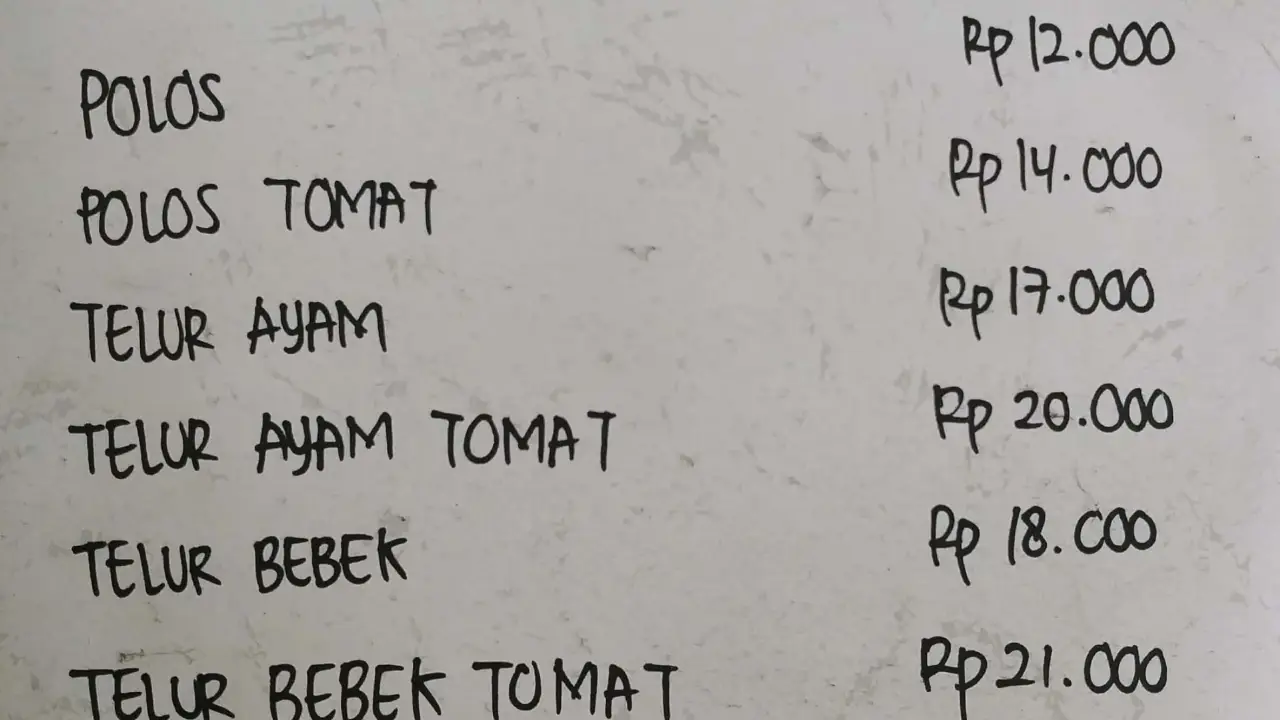 POLOS Rp 12.000
POLOS TOMAT Rp 14.000
TELUR AYAM Rp 17.000
TELUR AYAM TOMAT Rp 20.000
TELUR BEBEK Rp 18.000
TELUR BEBEK TOMAT Rp 21.000